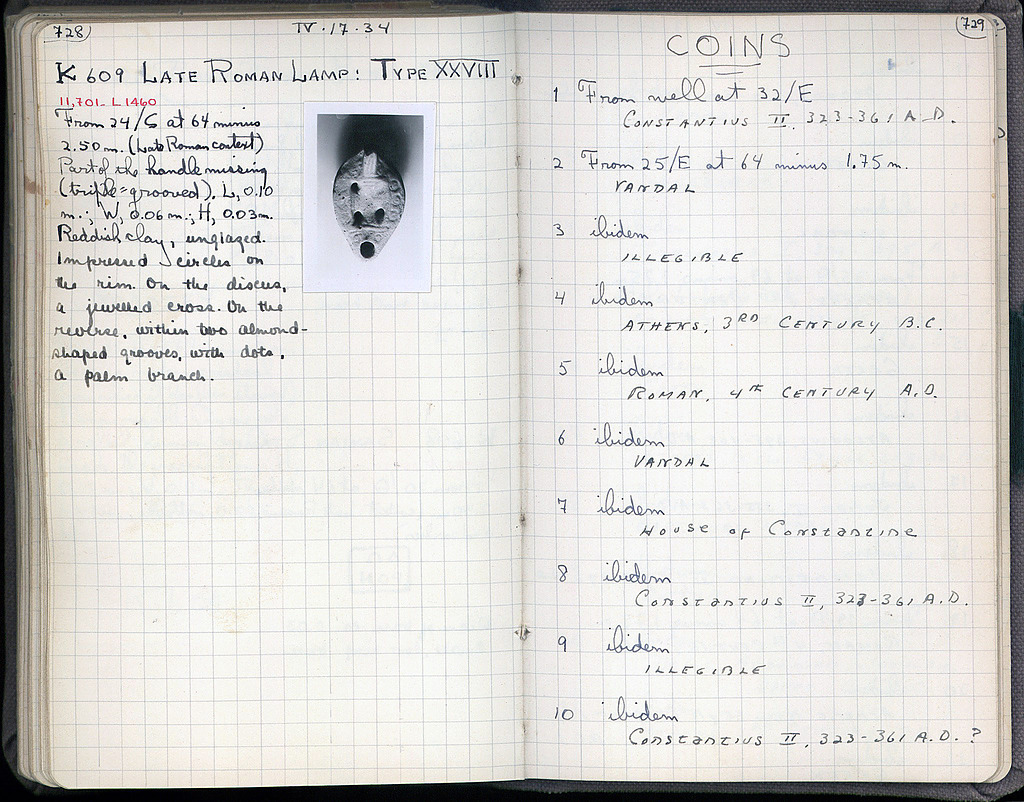 728
IV.17.34
K 609 LATE ROMAN LAMP: TYPE XXVIII
11,701- L 1460
From 24/S at 64 minus
2.50 m. (Late Roman context)
Part of the handle missing
(triple-grooved). L, 0.10
m.; W, 0.06 m.; H, 0.03m.
Reddish clay, unglazed.
Impressed circles on
the rim. On the discus,
a jewelled cross. On the
reverse, within two almond-
shaped grooves, with dots,
a palm branch.
729
COINS
1 From well at 32/E
CONSTANTIUS II, 323-361 A.D.
2 From 25/E at 64 minus 1.75 m.
VANDAL
3 ibidem
ILLEGIBLE
4 ibidem
ATHENS, 3RD CENTURY B.C.
5 ibidem
ROMAN, 4th CENTURY A.D.
6 ibidem
VANDAL
7 ibidem
House of Constantine
8 ibidem
Constantius II, 323-361 A.D.
9 ibidem
ILLEGIBLE
10 ibidem
Constantius II, 323-361 A.D. ?